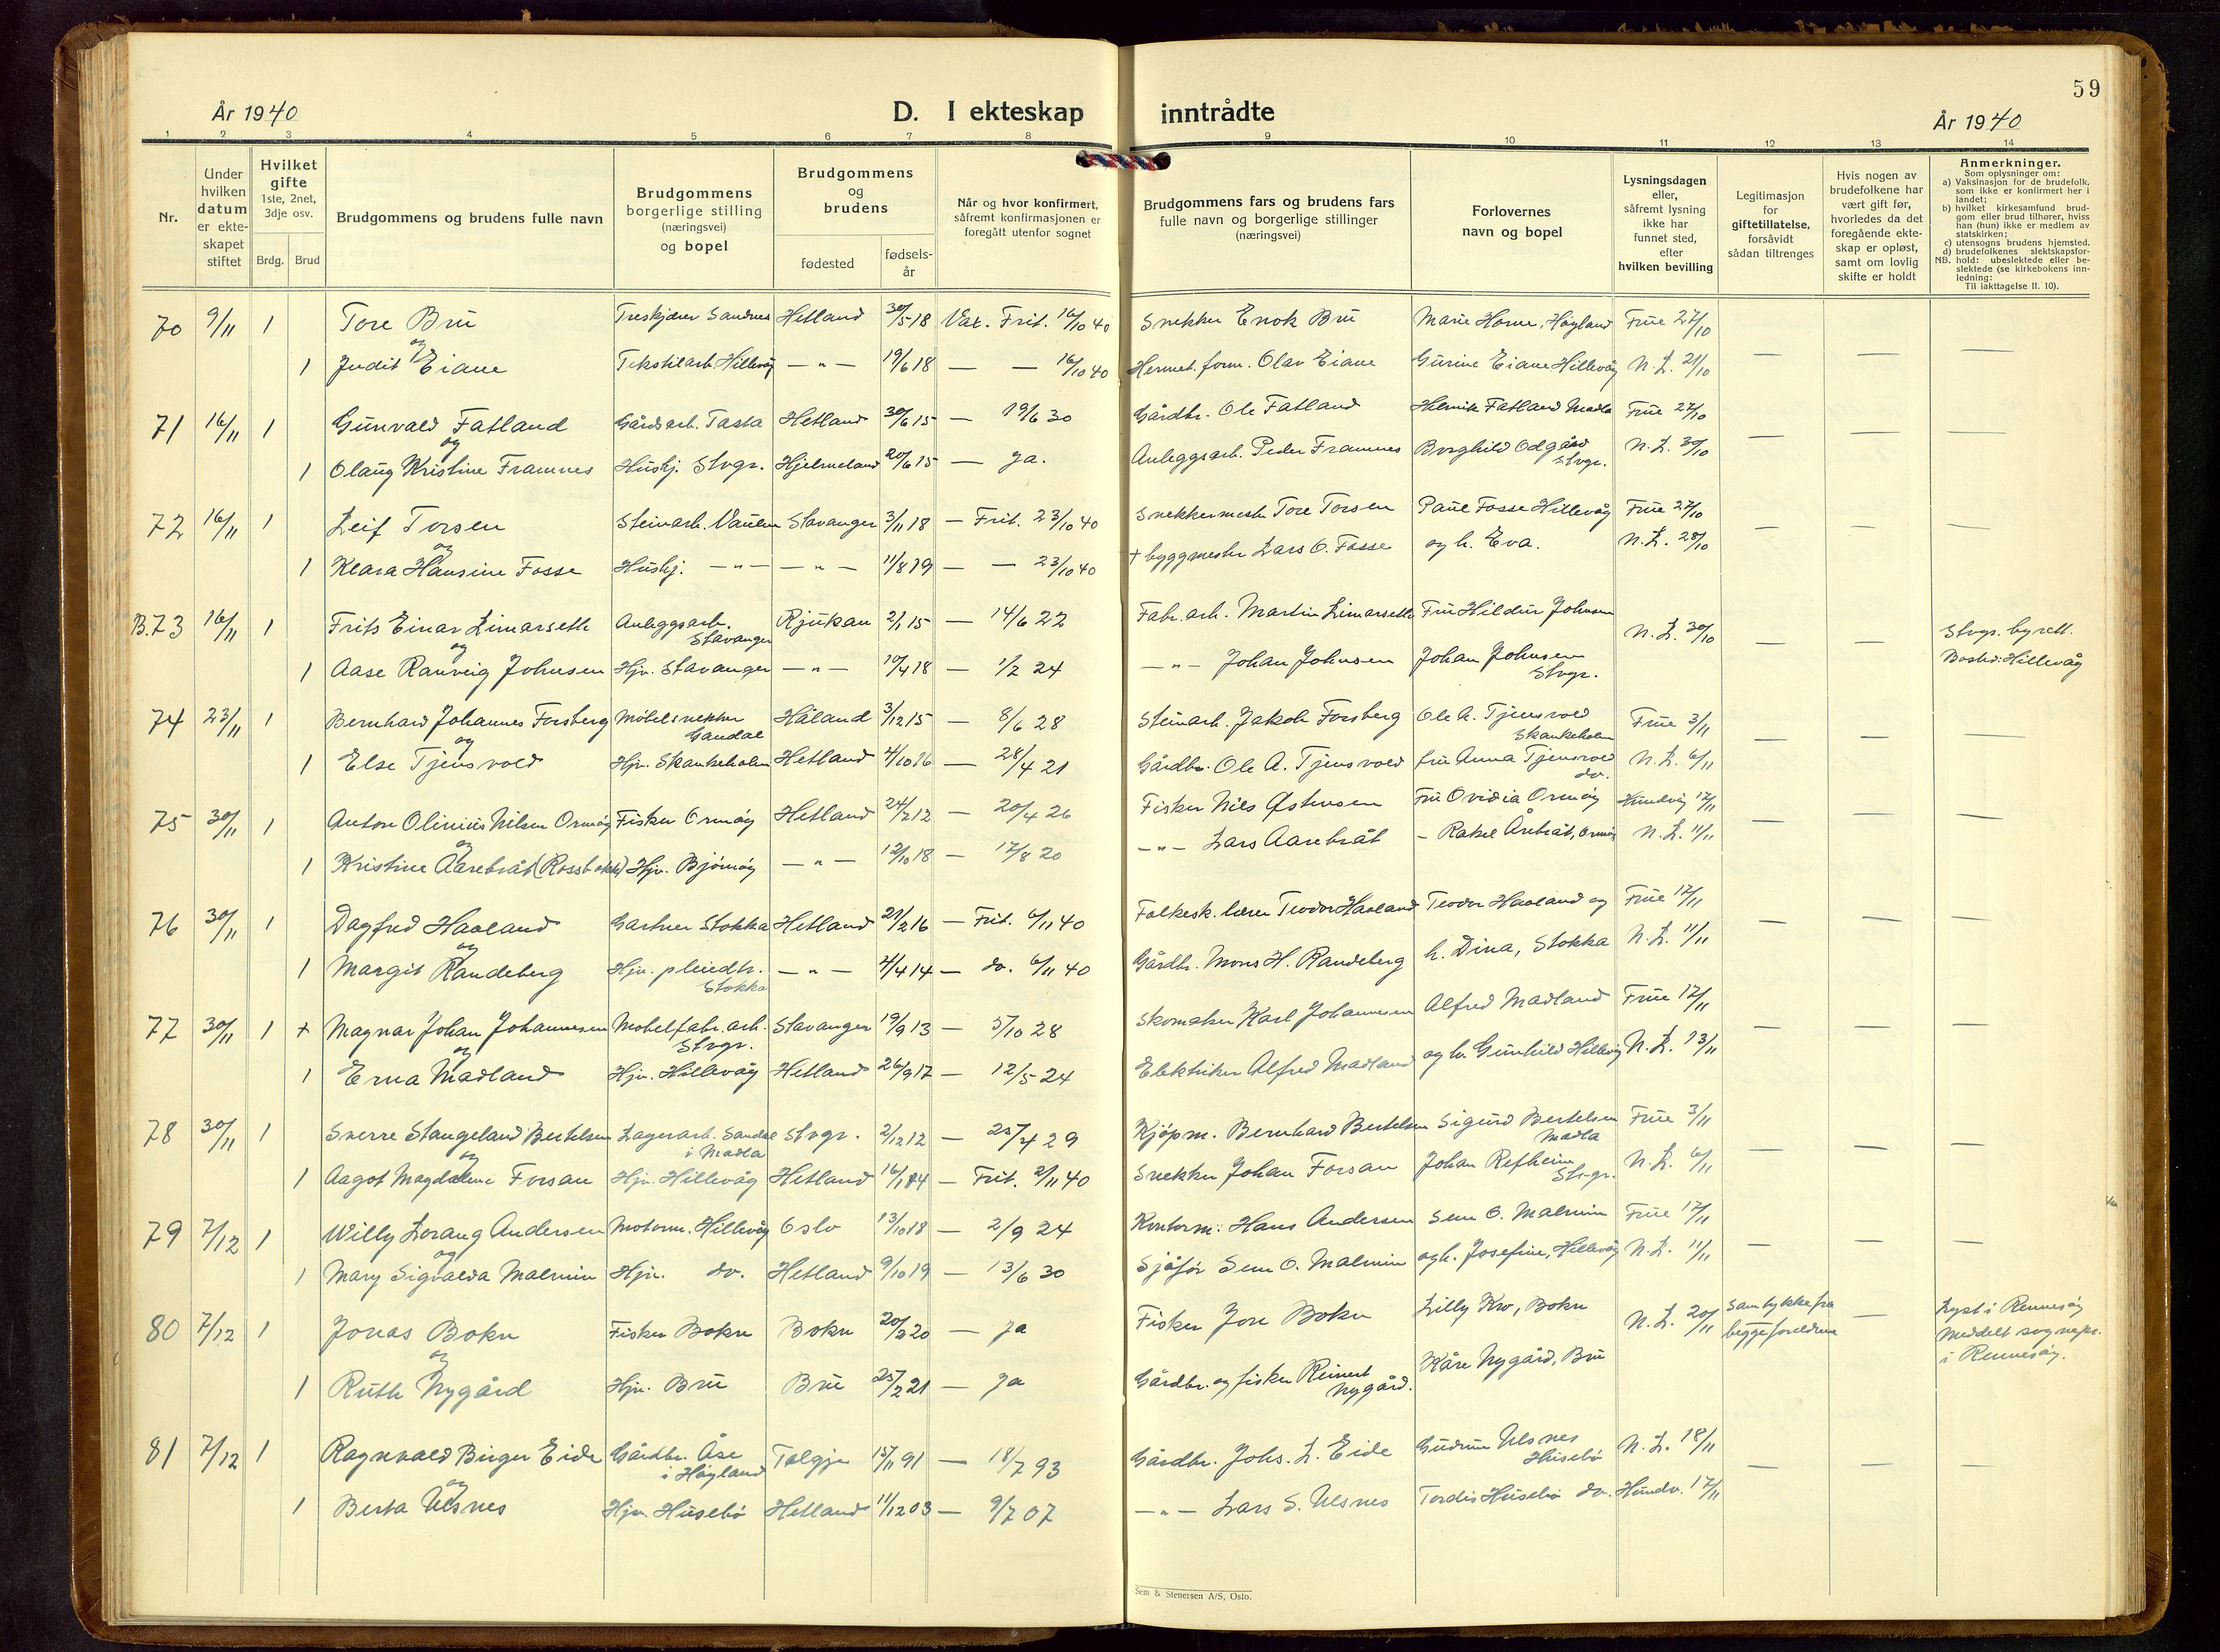 59
År 1940
D. I ekteskap inntrådte
År 1940
1 2 3 4 5 6 7 8 9 10 11 12 13 14
Nr.
Under hvilken datum er ekteskapet stiftet
Hvilket gifte 1ste, 2net, 3dje osv.
Brdg. Brud
Brudgommens og brudens fulle navn
Brudgommens borgerlige stilling (næringsvei) og bopel
Brudgommens og brudens
fødested
fødselsår
Når og hvor konfirmert, såfremt konfirmasjonen er foregått utenfor sognet
Brudgommens fars og brudens fars fulle navn og borgerlige stillinger (næringsvei)
Forlovernes navn og bopel
Lysningsdagen eller, såfremt lysning ikke har funnet sted, efter hvilken bevilling
Legitimasjon for giftetillatelse, forsåvidt sådan tiltrenges
Hvis nogen av brudefolkene har vært gift før, hvorledes da det foregående ekteskap er opløst, samt om lovlig skifte er holdt
Anmerkninger.
Som oplysninger om:
a) Vaksinasjon for de brudefolk, som ikke er konfirmert her i landet;
b) hvilket kirkesamfund brudgom eller brud tilhører, hviss han (hun) ikke er medlem av statskirken;
c) utensogns brudens hjemsted.
d) brudefolkenes slektskapsforhold: ubeslektede eller beslektede (se kirkebokens innledning:
NB.
Til iakttagelse II. 10).
70 9/11 1 Tore Bru Treskjærer Sandnes Hetland 30/5 18 Vax. Frit. 16/10 40 Snekker Enok Bru Marie Horne, Høyland Frue 27/10
og
1 Judit Eiane Tekstilarb. Hillevåg — " — 19/6 18 — — 16/10 40 Hermet. form. Olav Eiane Gurine Eiane Hillevåg N.L. 21/10 — — —
71 16/11 1 Gunvald Fatland Gårdsarb. Tasta Hetland 30/6 15 — 19/6 30 Gårdbr. Ole Fatland Henrik Fatland Madla Frue 27/10
og
1 Olaug Kristine Framnes Hushj. Stvgr. Hjelmeland 20/6 15 — Ja. Anleggsarb. Peder Framnes Borghild Odgård Stvgr. N.L. 30/10 — — —
72 16/11 1 Leif Torsen Steinarb. Vaulen Stavanger 3/11 18 — Frit. 23/10 40 Snekkermester Tore Torsen Paul Fosse Hillevåg Frue 27/10
og
1 Klara Hansine Fosse Hushj. — " — — " — 11/8 19 — — 23/10 40 + byggmester Lars O. Fosse og h. Eva. N.L. 28/10 — — —
B.73 16/11 1 Frits Einar Limarseth Anleggsarb. Stavanger Rjukan 2/1 15 — 14/6 22 Fabr. arb. Martin Limarseth Fru Hildur Johnsen N.L. 30/10 — — Stvgr. byrett.
og
1 Aase Ranveig Johnsen Hjv. Stavanger — " — 10/4 18 — 1/2 24 — " — Johan Johnsen Johan Johnsen Stvgr. Bosted: Hillevåg
74 23/11 1 Bernhard Johannes Forsberg Møbelsnekker Gandal Håland 3/12 15 — 8/6 28 Steinarb. Jakob Forsberg Ole A. Tjensvold Skankeholm Frue 3/11
og
1 Else Tjensvold Hjv. Skankeholm Hetland 4/10 16 — 28/4 21 Gårdbr. Ole A. Tjensvold fru Anna Tjensvold do. N.L. 6/11 — — —
75 30/11 1 Anton Olinius Nilsen Ormøy Fisker Ormøy Hetland 24/2 12 — 20/4 26 Fisker Nils Østensen Fru Ovidia Ormøy Hundvåg 17/11
og
1 Kristine Aarebråt Hjv. Bjørnøy — " — 12/10 18 — 17/8 20 — " — Lars Aarebråt — Rakel Årebråt, Ormøy N.L. 11/11 — — —
76 30/11 1 Dagfred Haaland Gartner Stokka Hetland 21/2 16 — Frit. 6/11 40 Folkesk. lærer Teodor Haaland Teodor Haaland og Frue 17/11
og
1 Margit Randeberg Hjv. pleiedtr. Stokka — " — 4/4 14 — do. 6/11 40 Gårdbr. Mons H. Randeberg h. Dina, Stokka N.L. 11/11 — — —
77 30/11 1 + Magnar Johan Johannesen Møbelfabr. arb. Stvgr. Stavanger 19/9 13 — 5/10 28 Skomaker Karl Johannesen Alfred Madland Frue 17/11
og
1 Erna Madland Hjv. Hillevåg Hetland 26/9 17 — 12/5 24 Elektriker Alfred Madland og h. Gunhild Hillevåg N.L. 13/11 — — —
78 30/11 1 Sverre Stangeland Bertelsen Lagerarb. Sandal i Madla Stvgr. 2/12 12 — 25/4 29 Kjøpm. Bernhard Bertelsen Sigurd Bertelsen Madla Frue 3/11
og
1 Aagot Magdalene Forsan Hjv. Hillevåg Hetland 16/1 14 — Frit. 2/11 40 Snekker Johan Forsan Johan Refheim Stvgr. N.L. 6/11 — — —
79 7/12 1 Willy Lorang Andersen Motorm. Hillevåg Oslo 13/10 18 — 2/9 24 Kontorm. Hans Andersen Sem O. Malmin Frue 17/11
og
1 Mary Sigvalda Malmin Hjv. do. Hetland 9/10 19 — 13/6 30 Sjåfør Sem O. Malmin og h. Josefine, Hillevåg N.L. 11/11 — — —
80 7/12 1 Jonas Bokn Fisker Bokn Bokn 20/2 20 — Ja Fisker Jore Bokn Lilly Kro, Bokn N.L. 20/11 Samtykke fra begge foreldrene — Lyst i Rennesøy
og
1 Ruth Nygård Hjv. Bru Bru 25/2 21 — Ja Gårdbr. og fisker Reinert Nygård. Kåre Nygård, Bru Meddelt sognepr. i Rennesøy.
81 7/12 1 Ragnvald Birger Eide Gårdbr. Åse i Høyland Talgje 15/11 91 — 18/7 93 Gårdbr. Johs. L. Eide Gudrun Ulsnes Husebø N.L. 18/11
og
1 Berta Ulsnes Hjv. Husebø Hetland 11/12 03 — 9/7 07 — " — Lars S. Ulsnes Tordis Husebø do. Hundv. 17/11 — — —
Sem & Stenersen A/S, Oslo.